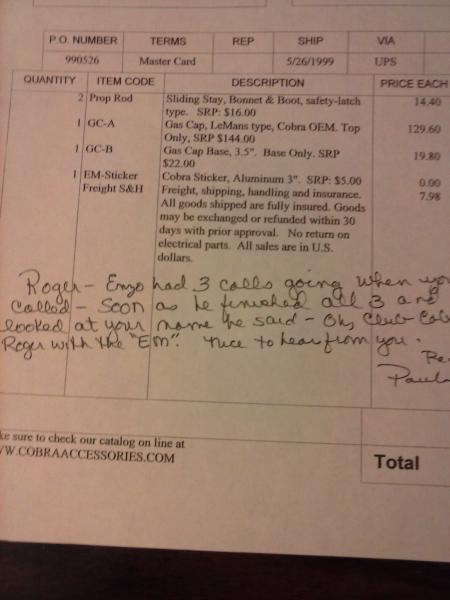 P.O. NUMBER TERMS REP SHIP VIA
990526 Master Card 5/26/1999 UPS
QUANTITY ITEM CODE DESCRIPTION PRICE EACH
2 Prop Rod Sliding Stay, Bonnet & Boot, safety-latch 14.40
type. SRP: $16.00
1 GC-A Gas Cap, LeMans type, Cobra OEM. Top 129.60
Only, SRP $144.00
1 GC-B Gas Cap Base, 3.5". Base Only. SRP 19.80
$22.00
1 EM-Sticker Cobra Sticker, Aluminum 3". SRP: $5.00 0.00
Freight S&H Freight, shipping, handling and insurance. 7.98
All goods shipped are fully insured. Goods
may be exchanged or refunded within 30
days with prior approval. No return on
electrical parts. All sales are in U.S.
dollars.
Roger - Enzo had 3 calls going when you
called - Soon as he finished all 3 and
looked at your name he said - Oh, Club Cob
Roger with the "EM". Nice to hear from you.
Re
Paul
ke sure to check our catalog on line at
W.COBRAACCESSORIES.COM
Total